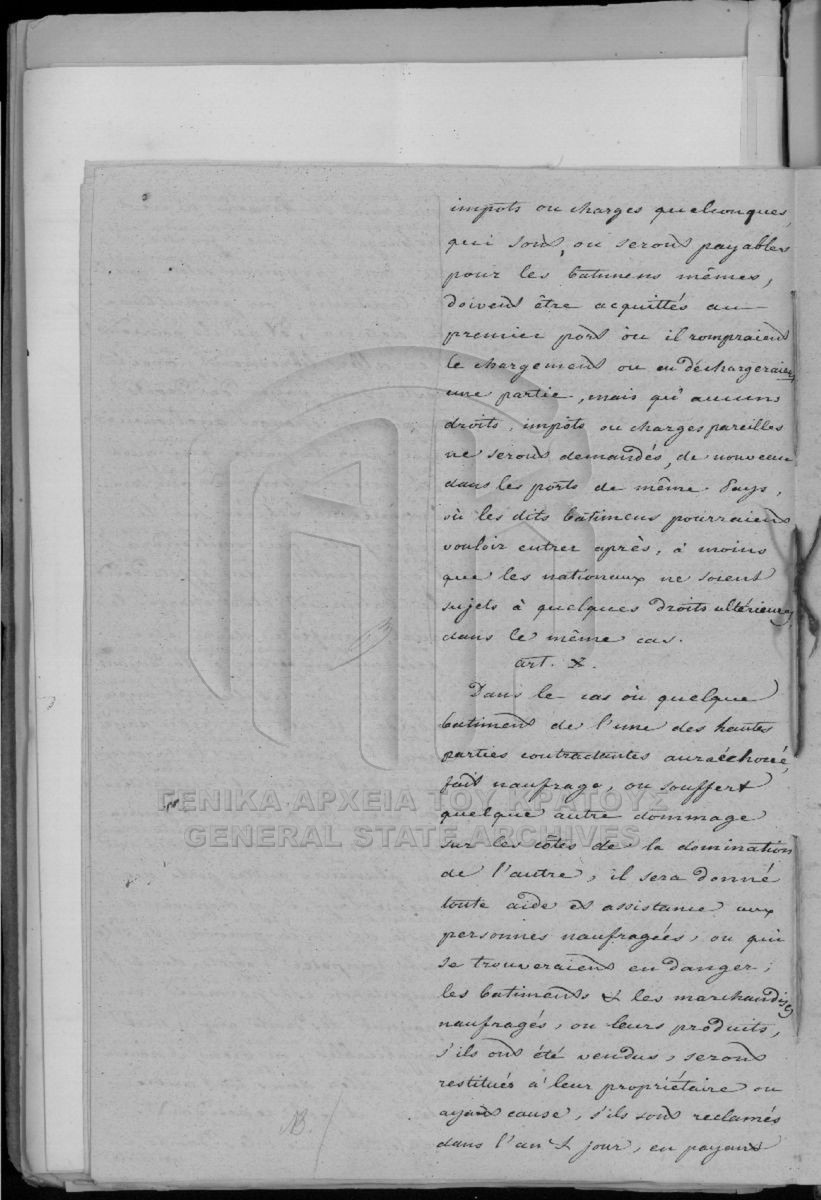 impots ou charges quelconques,
qui sont, ou seront payables
pour les batimens mêmes,
doivent être acquittés au
premier port où il rompraient
le chargement ou en déchargeraient
une partie, mais qu'aucuns
droits, impôts ou charges pareilles
ne seront demandés, de nouveau
dans les ports de même Pays,
où les dits batimens pourraient
vouloir entrer après, à moins
que les nationaux ne soient
sujets à quelques droits ultérieurs,
dans le même cas.
art. X.
Dans le cas où quelque
batiment de l'une des hautes
parties contractantes aura échoué,
fait naufrage, ou souffert
quelque autre dommage
sur les côtes de la domination
de l'autre, il sera donné
toute aide et assistance aux
personnes naufragées, ou qui
se trouveraient en danger;
les batiments & les marchandises
naufragés, ou leurs produits,
s'ils ont été vendus, seront
restitués à leur propriétaire ou
ayant cause, s'ils sont reclamés
dans l'an & jour, en payant
NB.
ΓΕΝΙΚΑ ΑΡΧΕΙΑ ΤΟΥ ΚΡΑΤΟΥΣ
GENERAL STATE ARCHIVES